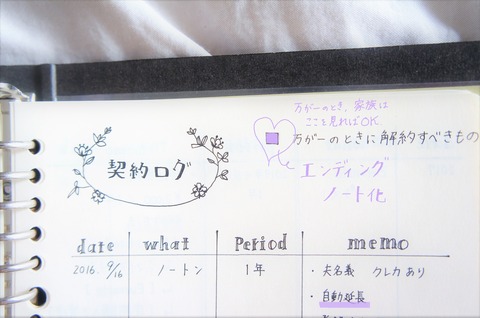 万が一のとき、家族は
ここを見ればOK
万が一のときに解約すべきもの
契約ログ
エンディング
ノート化
date what Period memo
2016. 9/16 ノートン 1年 ・夫名義 クレカあり
・自動延長